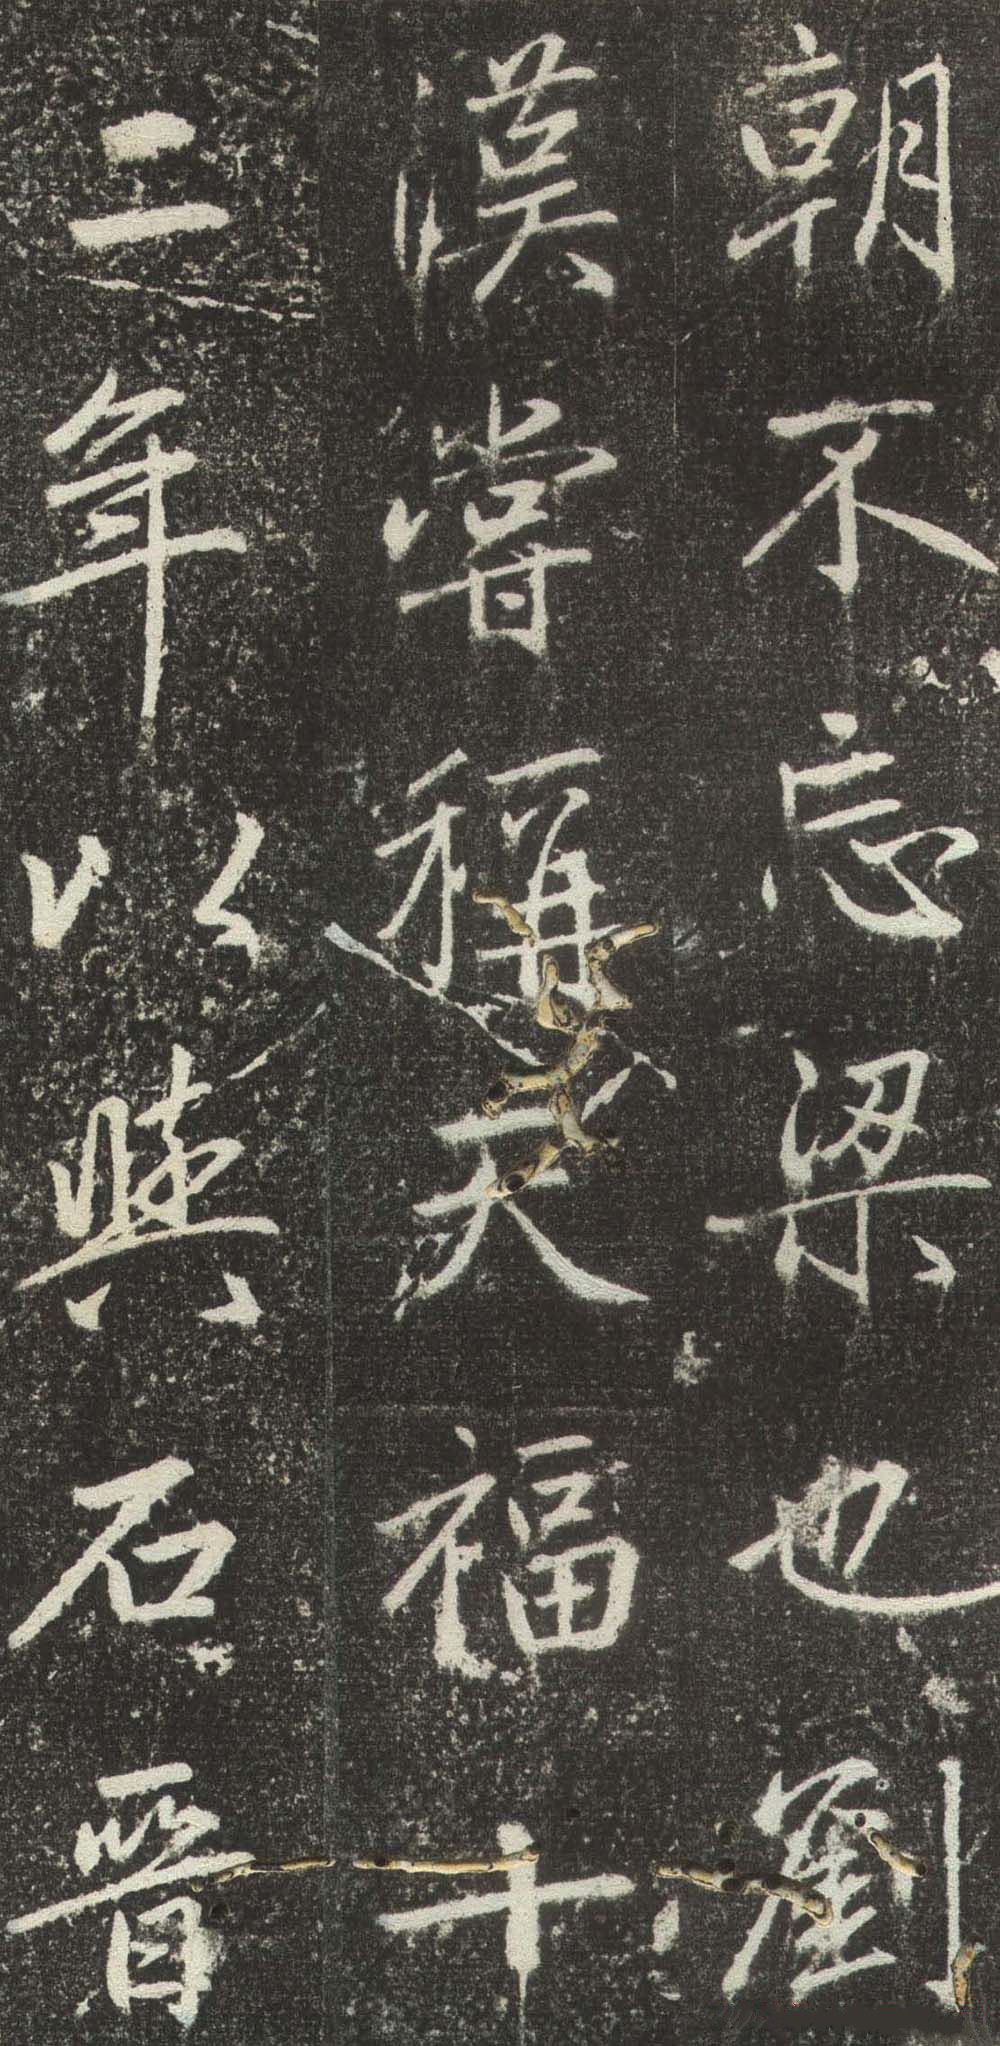 朝不忘梁也劉
漢嘗稱天福十
二年以與石晉